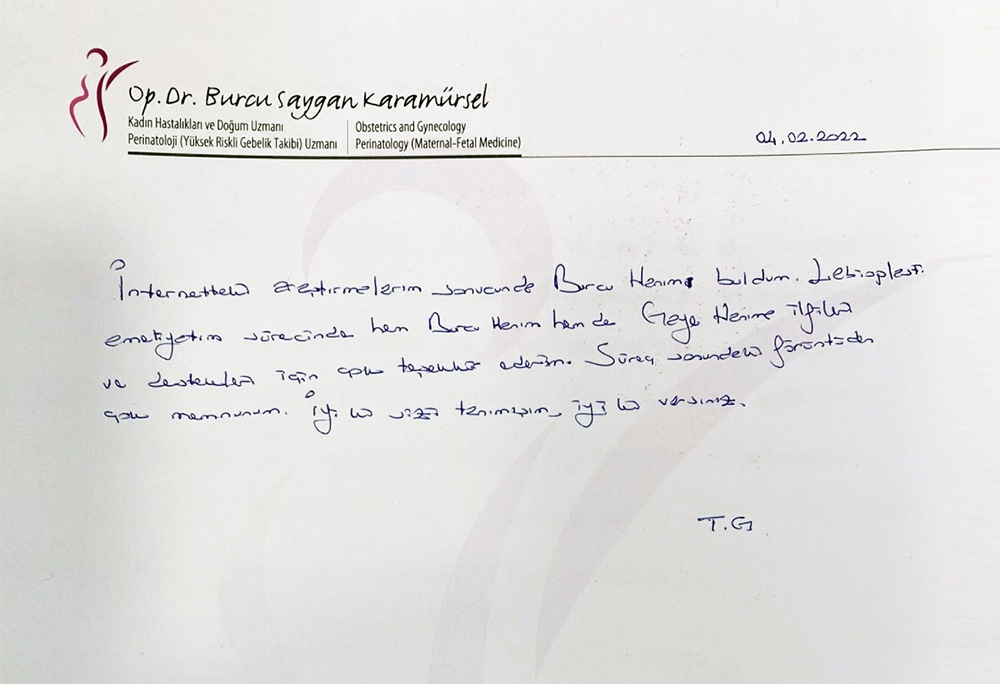 Op. Dr. Burcu Saygan Karamürsel
Kadın Hastalıkları ve Doğum Uzmanı
Perinatoloji (Yüksek Riskli Gebelik Takibi) Uzmanı
Obstetrics and Gynecology
Perinatology (Maternal-Fetal Medicine)
04.02.2022
İnternetteki araştırmalarım sonucunda Burcu Hanımı buldum. Labioplasti
ameliyatım sürecinde hem Burcu Hanım hem de Hanıma ilgileri
ve destekleri için çok teşekkür ederim. Süreç sonundaki görüntüden
çok memnunum. İyi ki sizi tanımışım, iyi ki varsınız.
T.G